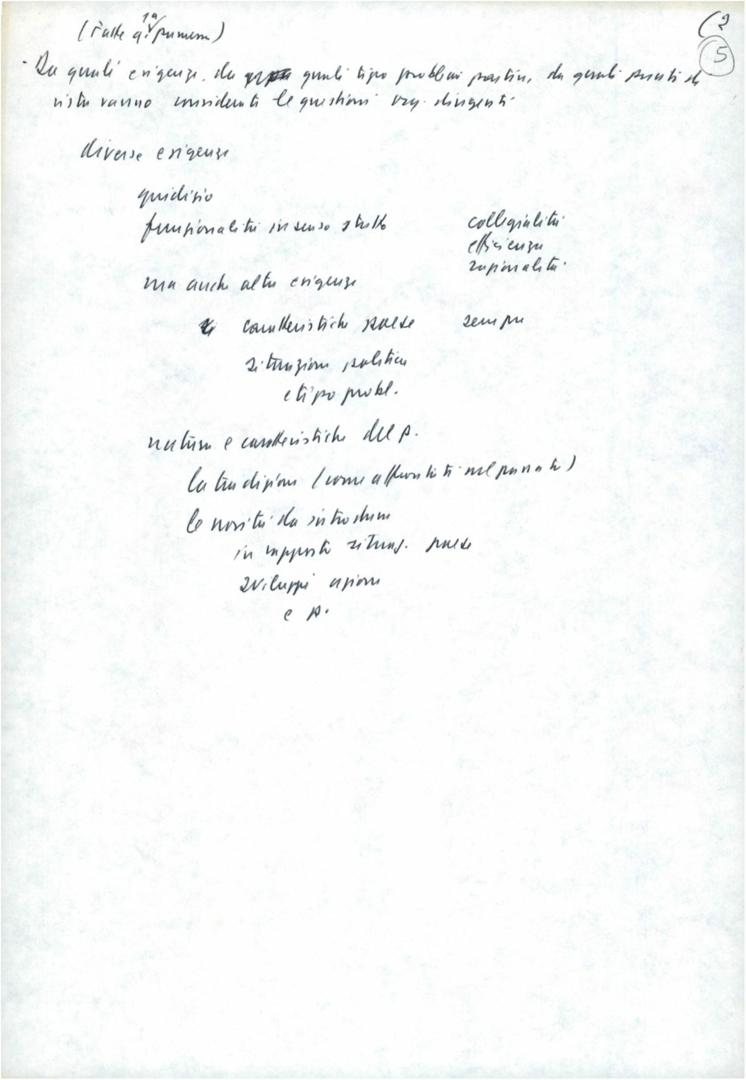 (2
5
(Fatte q. 1a premessa)
- Da quali esigenze, da quali tipo problemi partire, da quali punti di
vista vanno considerati le questioni org. dirigenti
diverse esigenze
giudizio
funzionalità in senso stretto collegialità
efficienza
razionalità
ma anche altre esigenze
caratteristiche paese sempre
situazione politica
e tipo probl.
natura e caratteristiche del p.
la tradizione (come affrontati nel passato)
le novità da introdurre
in rapporto situaz. paese
sviluppi azione
e p.